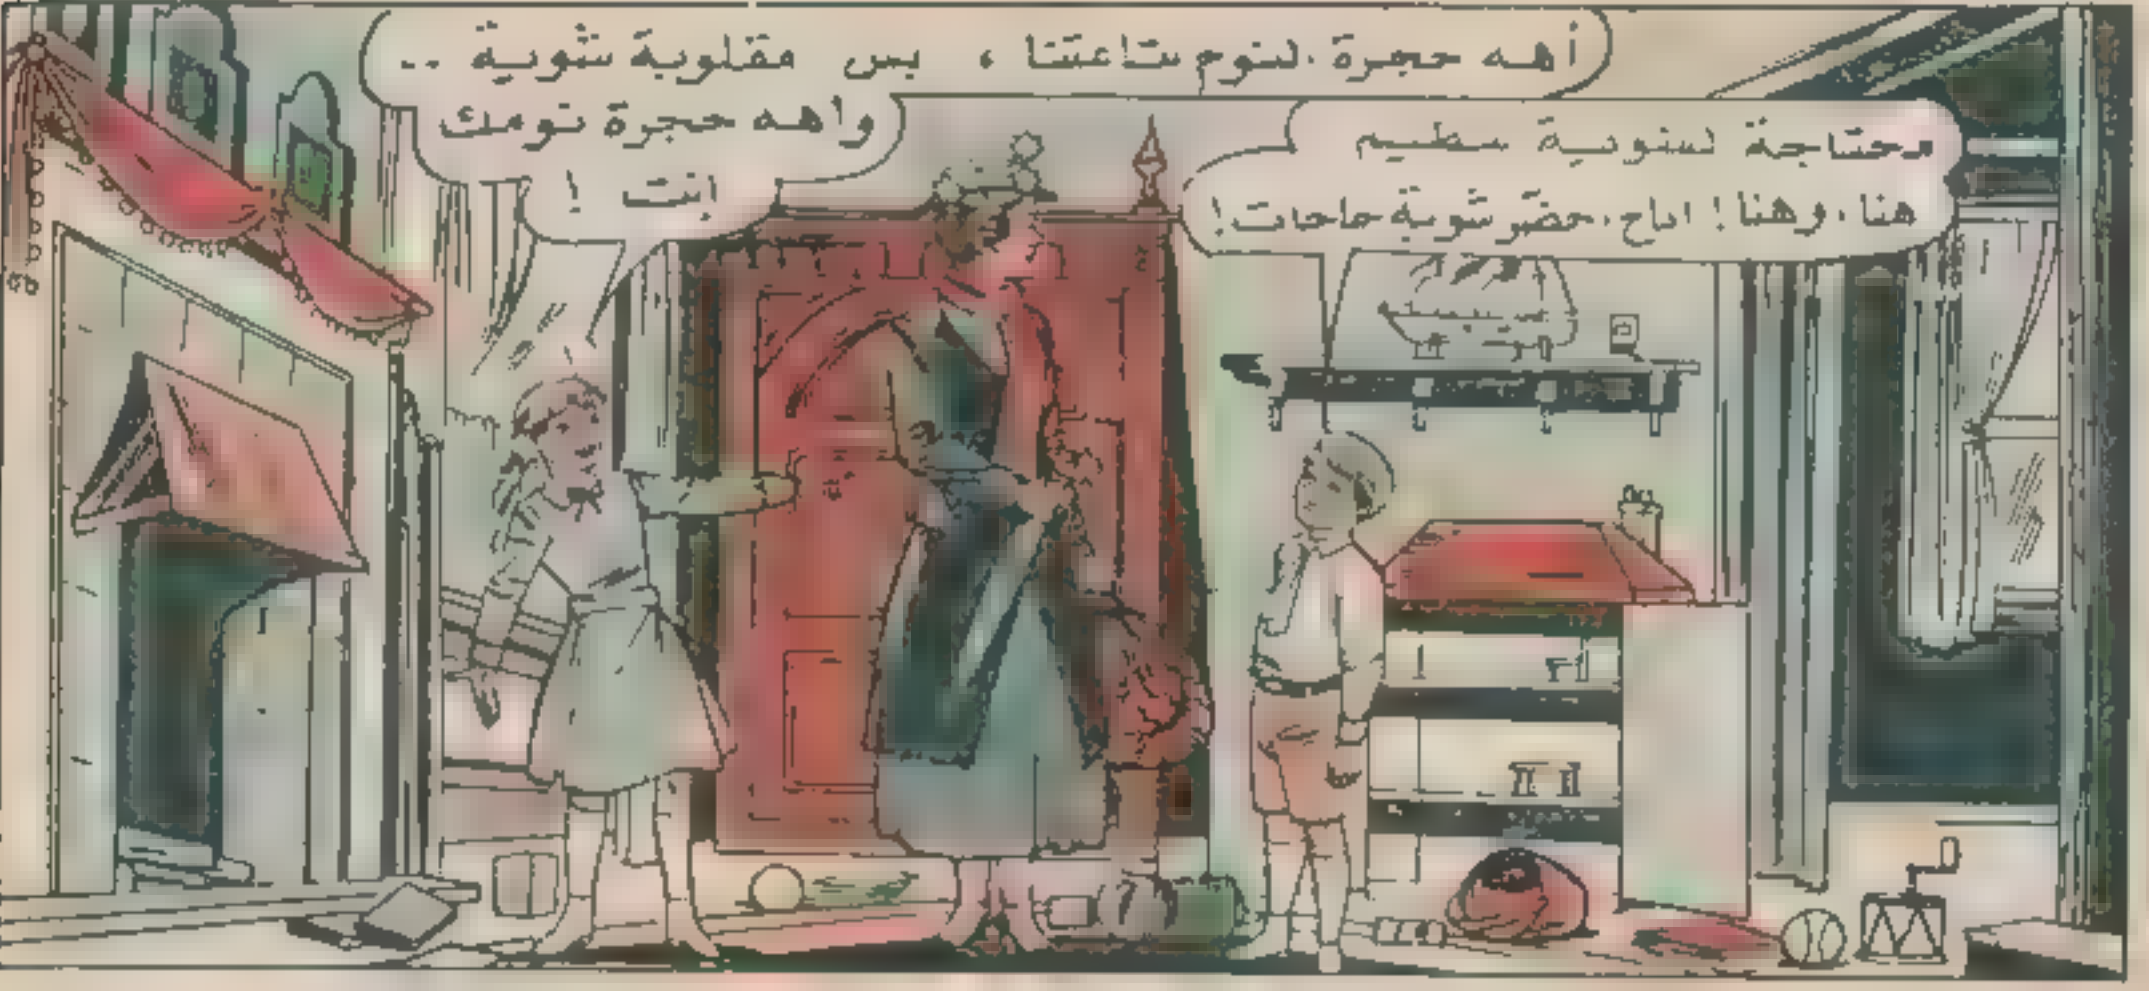 أهه حجرة النوم بتاعتنا، بس مقلوبة شوية ..
واهه حجرة نومك
انت !
محتاجة لشوية تنظيم
هنا، وهنا! حضر شوية حاجات!